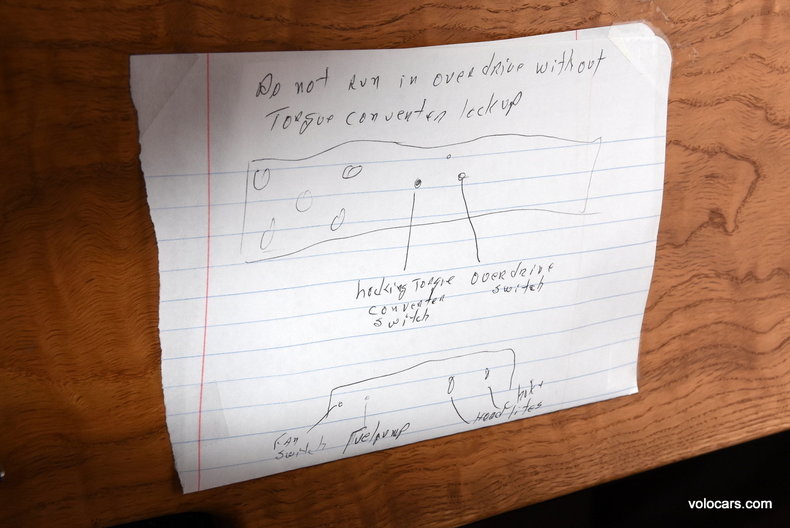 Do not Run in overdrive without
Torque converter lockup
hocking Torque
converter
switch
overdrive
switch
Fan
switch
Fuelpump
Headlites
volocars.com